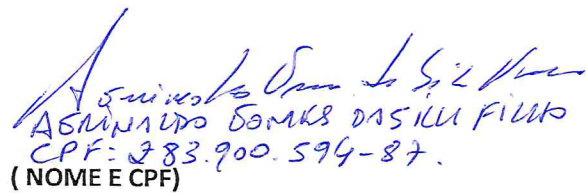 Agninaldo Gomes da Silva Filho
AGNINALDO GOMES DA SILVA FILHO
CPF: 283.900.594-87.
( NOME E CPF)